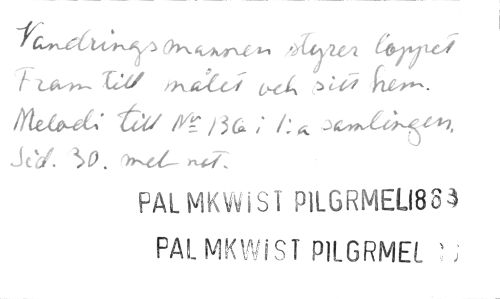 Vandringsmannen styrer loppet
Fram till målet och sitt hem.
Melodi till Nr 136 i 1:a samlingen,
Sid. 30. mel not.
PALMKWIST PILGRMEL1883
PALMKWIST PILGRMEL